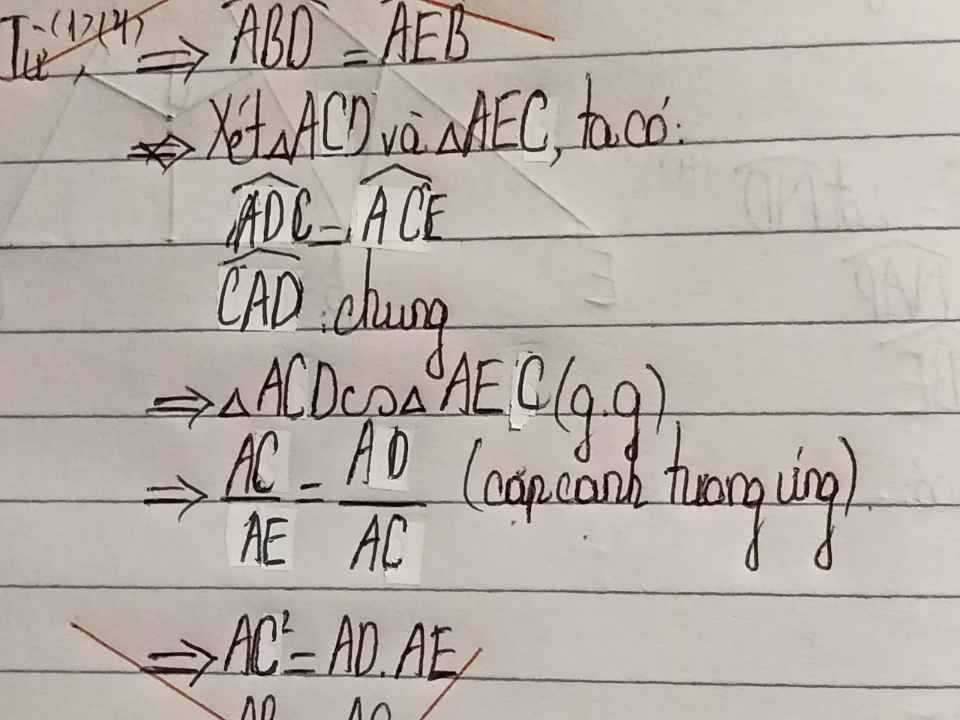 Từ (1), (4) ⇒ ABD = AEB
⇒ Xét △ACD và △AEC, ta có:
ADC = ACE
CAD : chung
⇒ △ACD ∽ △AEC (g.g)
⇒ AC/AE = AD/AC (cặp cạnh tương ứng)
⇒ AC² = AD.AE